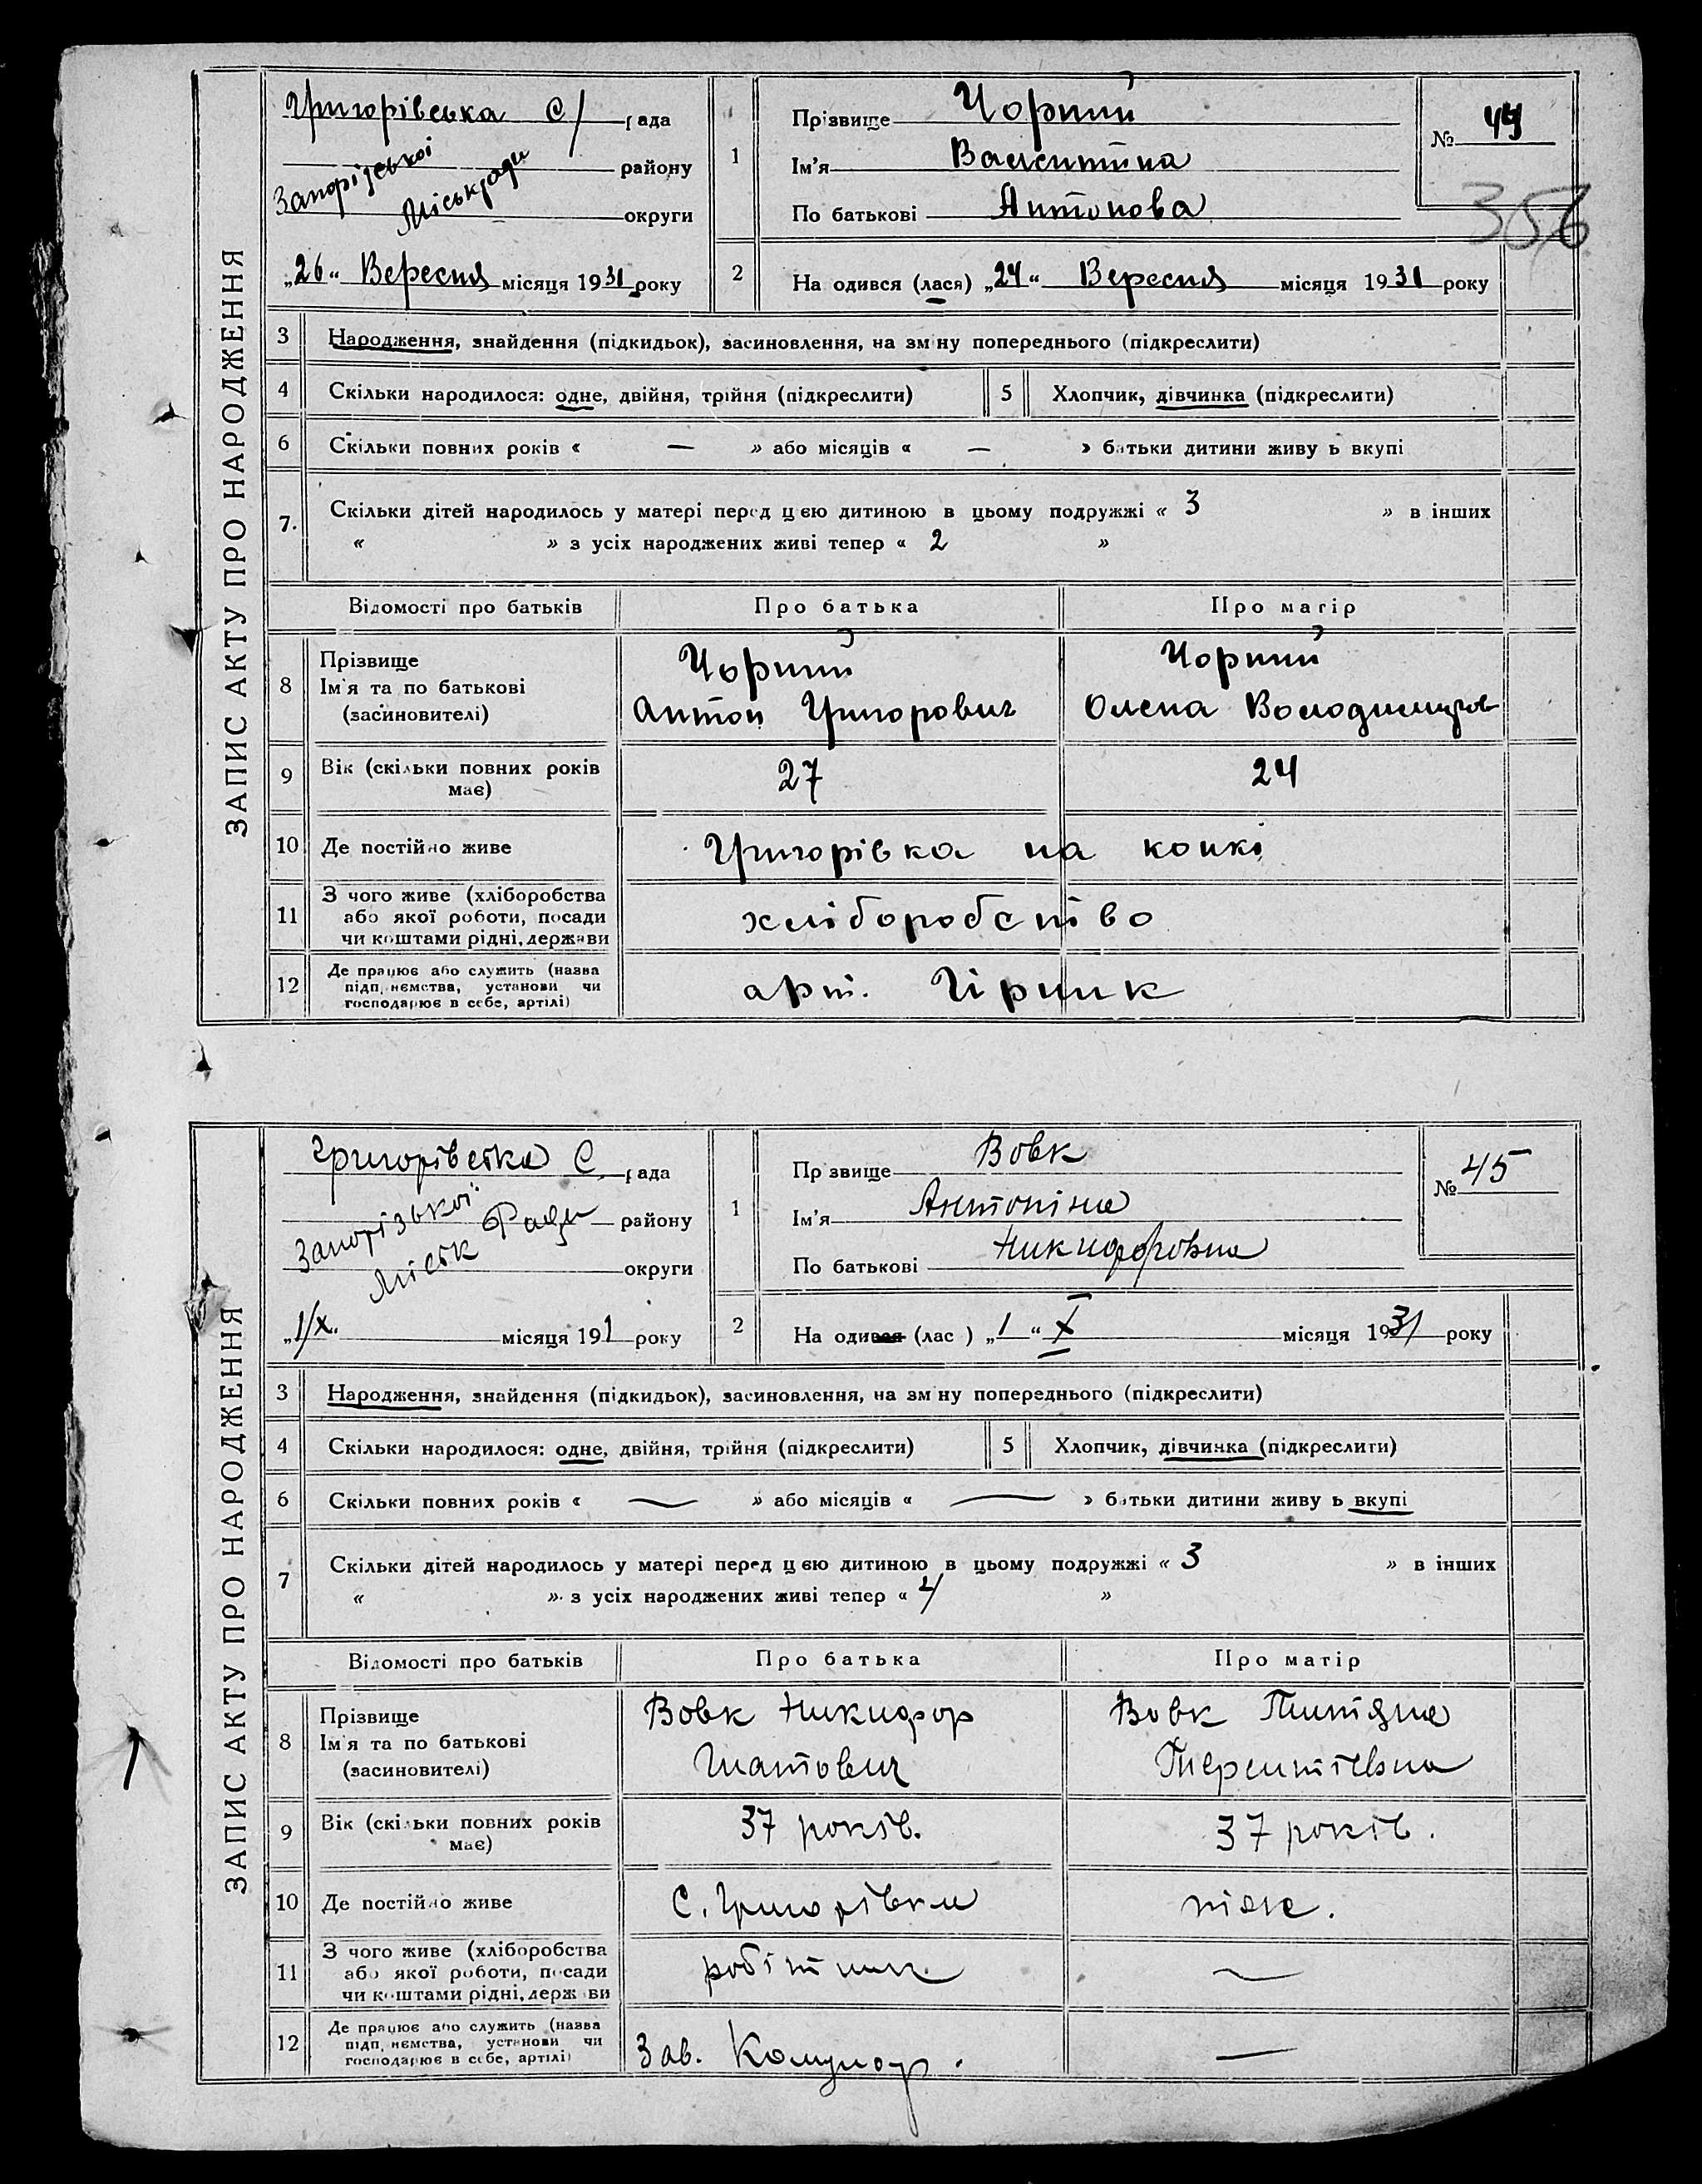 ЗАПИС АКТУ ПРО НАРОДЖЕННЯ
Григорівська С/рада
Запорізької району
Міськради округи
„26“ Вересня місяця 1931 року
1
Прізвище Чорний
Ім'я Валентина
По батькові Антонова
№ 44
356
2
На одився (лася) „24“ Вересня місяця 1931 року
3 Народження, знайдення (підкидьок), засиновлення, на зм ну попереднього (підкреслити)
4 Скільки народилося: одне, двійня, трійня (підкреслити) 5 Хлопчик, дівчинка (підкреслити)
6 Скільки повних років « — » або місяців « — » батьки дитини живу ь вкупі
7. Скільки дітей народилось у матері перед цією дитиною в цьому подружжі « 3 » в інших
« » з усіх народжених живі тепер « 2 »
Відомості про батьків Про батька Про матір
8 Прізвище Чорний Чорний
Ім'я та по батькові Антон Григорович Олена Володимиров
(засиновителі)
9 Вік (скільки повних років має) 27 24
10 Де постійно живе Григорівка на конкі
11 З чого живе (хліборобства
або якої роботи, посади хліборобство
чи коштами рідні, держави
12 Де працює або служить (назва
підп, немства, установи чи арт. Гірник
господарює в себе, артілі)
ЗАПИС АКТУ ПРО НАРОДЖЕННЯ
Григорівська С рада
Запорізької району
Міськ Ради округи
„1/X. місяця 191 року
1
Пр звище Вовк
Ім'я Антоніна
По батькові Никифоровна
№ 45
2
На одився (лас ) „1“ X місяця 1931 року
3 Народження, знайдення (підкидьок), засиновлення, на зм ну попереднього (підкреслити)
4 Скільки народилося: одне, двійня, трійня (підкреслити) 5 Хлопчик, дівчинка (підкреслити)
6 Скільки повних років « — » або місяців « — » батьки дитини живу ь вкупі
7 Скільки дітей народилось у матері перед цією дитиною в цьому подружжі « 3 » в інших
« » з усіх народжених живі тепер « 4 »
Відомості про батьків Про батька Про матір
8 Прізвище Вовк Никифор Вовк
Ім'я та по батькові Терентіевна
(засиновителі)
9 Вік (скільки повних років має) 37 років. 37 років.
10 Де постійно живе С. Григорівка теж.
11 З чого живе (хліборобства
або якої роботи, посади робітник —
чи коштами рідні, держ ви
12 Де працює або служить (назва
підп, немства, установи чи Зав. Комунар. —
господарює в себе, артілі)